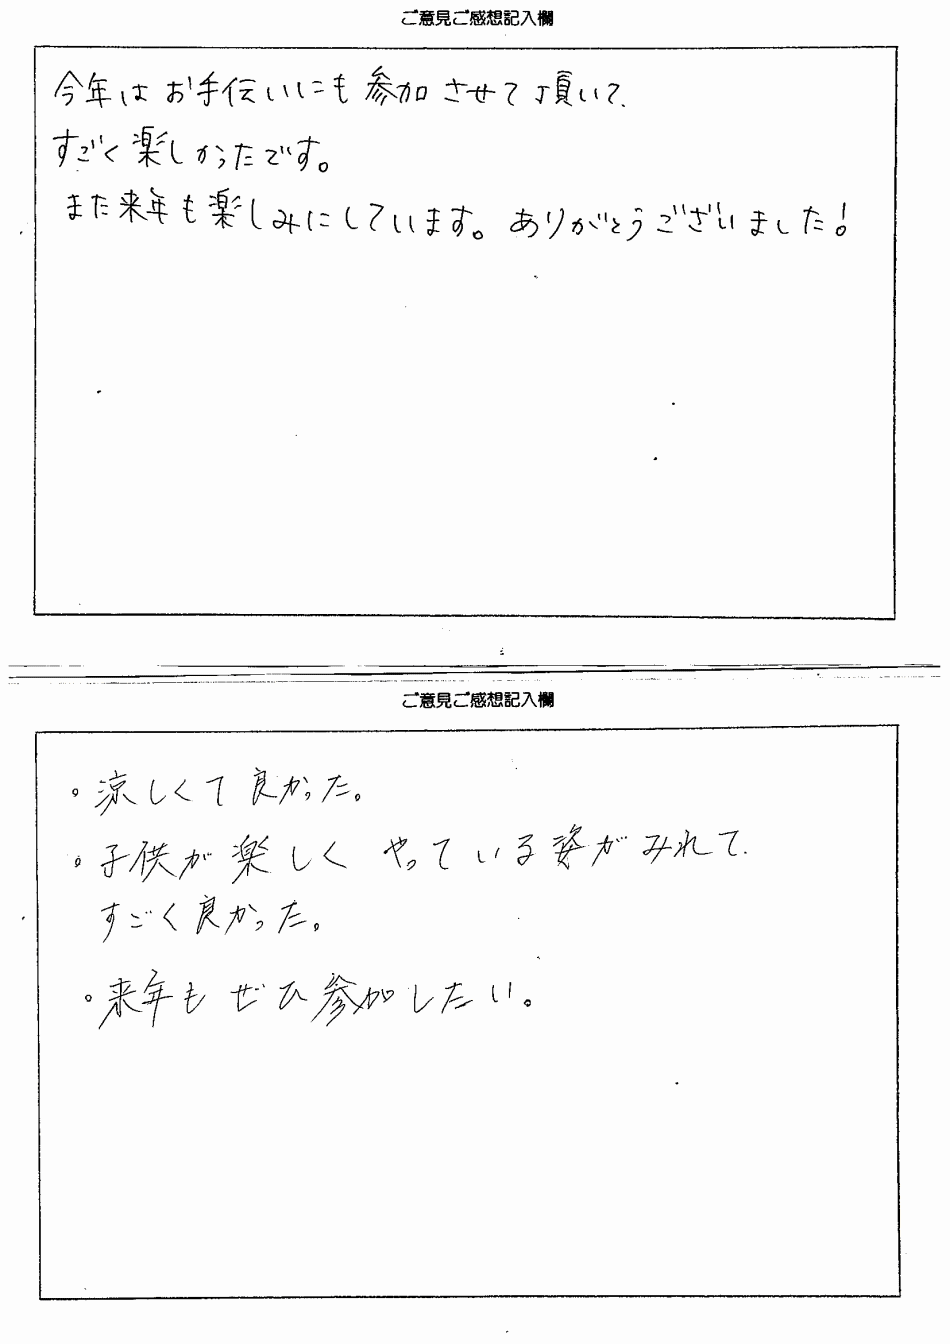 ご意見ご感想記入欄
今年はお手伝いにも参加させて頂いて、
すごく楽しかったです。
また来年も楽しみにしています。ありがとうございました!
ご意見ご感想記入欄
。涼しくて良かった。
。子供が楽しくやっている姿がみれて、
すごく良かった。
。来年もぜひ参加したい。